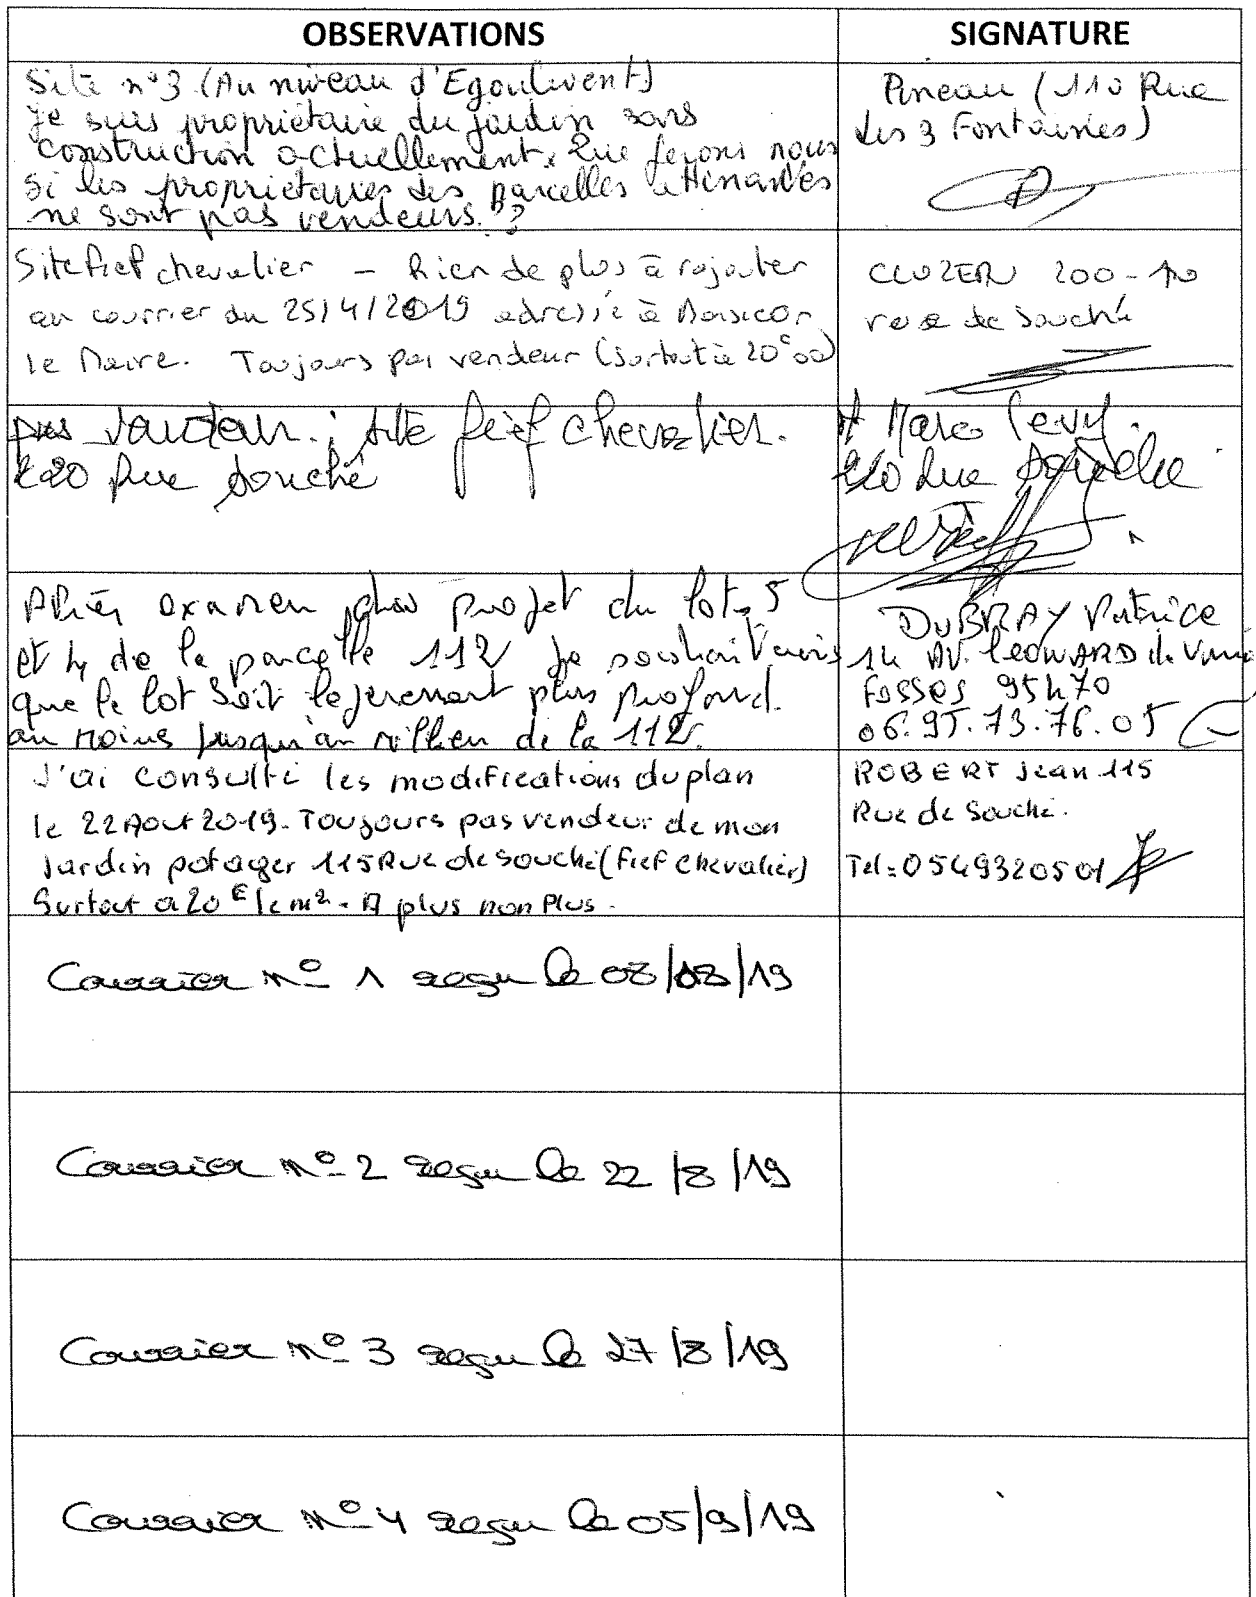 OBSERVATIONS
SIGNATURE
Site n°3 (Au niveau d'Egoutivent)
je suis propriétaire du jardin sans
construction actuellement. Que ferons nous
si les propriétaires des parcelles attenantes
ne sont pas vendeurs. ?
Pineau (110 Rue
des 3 Fontaines)
Site fief chevalier - Rien de plus à rajouter
au courrier du 25/4/2019 adressé à Monsieur
le Maire. Toujours pas vendeur (surtout à 20€00)
CLUZEAU 200-
rue de Souché
pas vendeur. ; site fief chevalier.
220 Rue Souché
Marc Levy.
Rue Souché
Après examen du projet du lot 5
et 4 de la parcelle 112 je souhaiterais
que le lot soit légèrement plus profond.
au moins jusqu'au milieu de la 112.
DUBRAY Patrice
14 AV. LEONARD de Vinci
FOSSES 95470
06.95.73.76.05
J'ai consulté les modifications du plan
le 22 Aout 2019. Toujours pas vendeur de mon
Jardin potager 115 Rue de Souché (Fief Chevalier)
Surtout a 20 € le m². A plus non Plus.
ROBERT Jean 115
Rue de Souché.
Tel: 0549320501
Courrier n° 1 reçu le 08/08/19
Courrier n° 2 reçu le 22/8/19
Courrier n° 3 reçu le 27/8/19
Courrier n° 4 reçu le 05/9/19